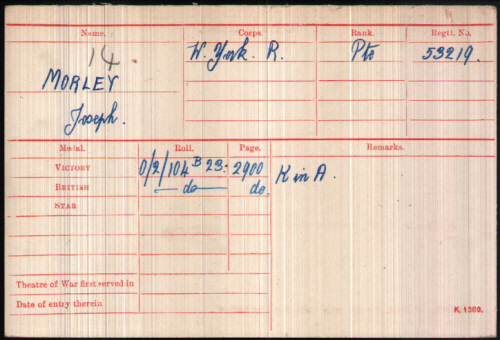 Name. Corps. Rank. Regtl. No.
14 W. York. R. Pte 53219.
MORLEY
Joseph.
Medal. Roll. Page. Remarks.
VICTORY O/2/104 B 23: 2900 K in A.
BRITISH do do.
STAR
Theatre of War first served in
Date of entry therein
K. 1380.